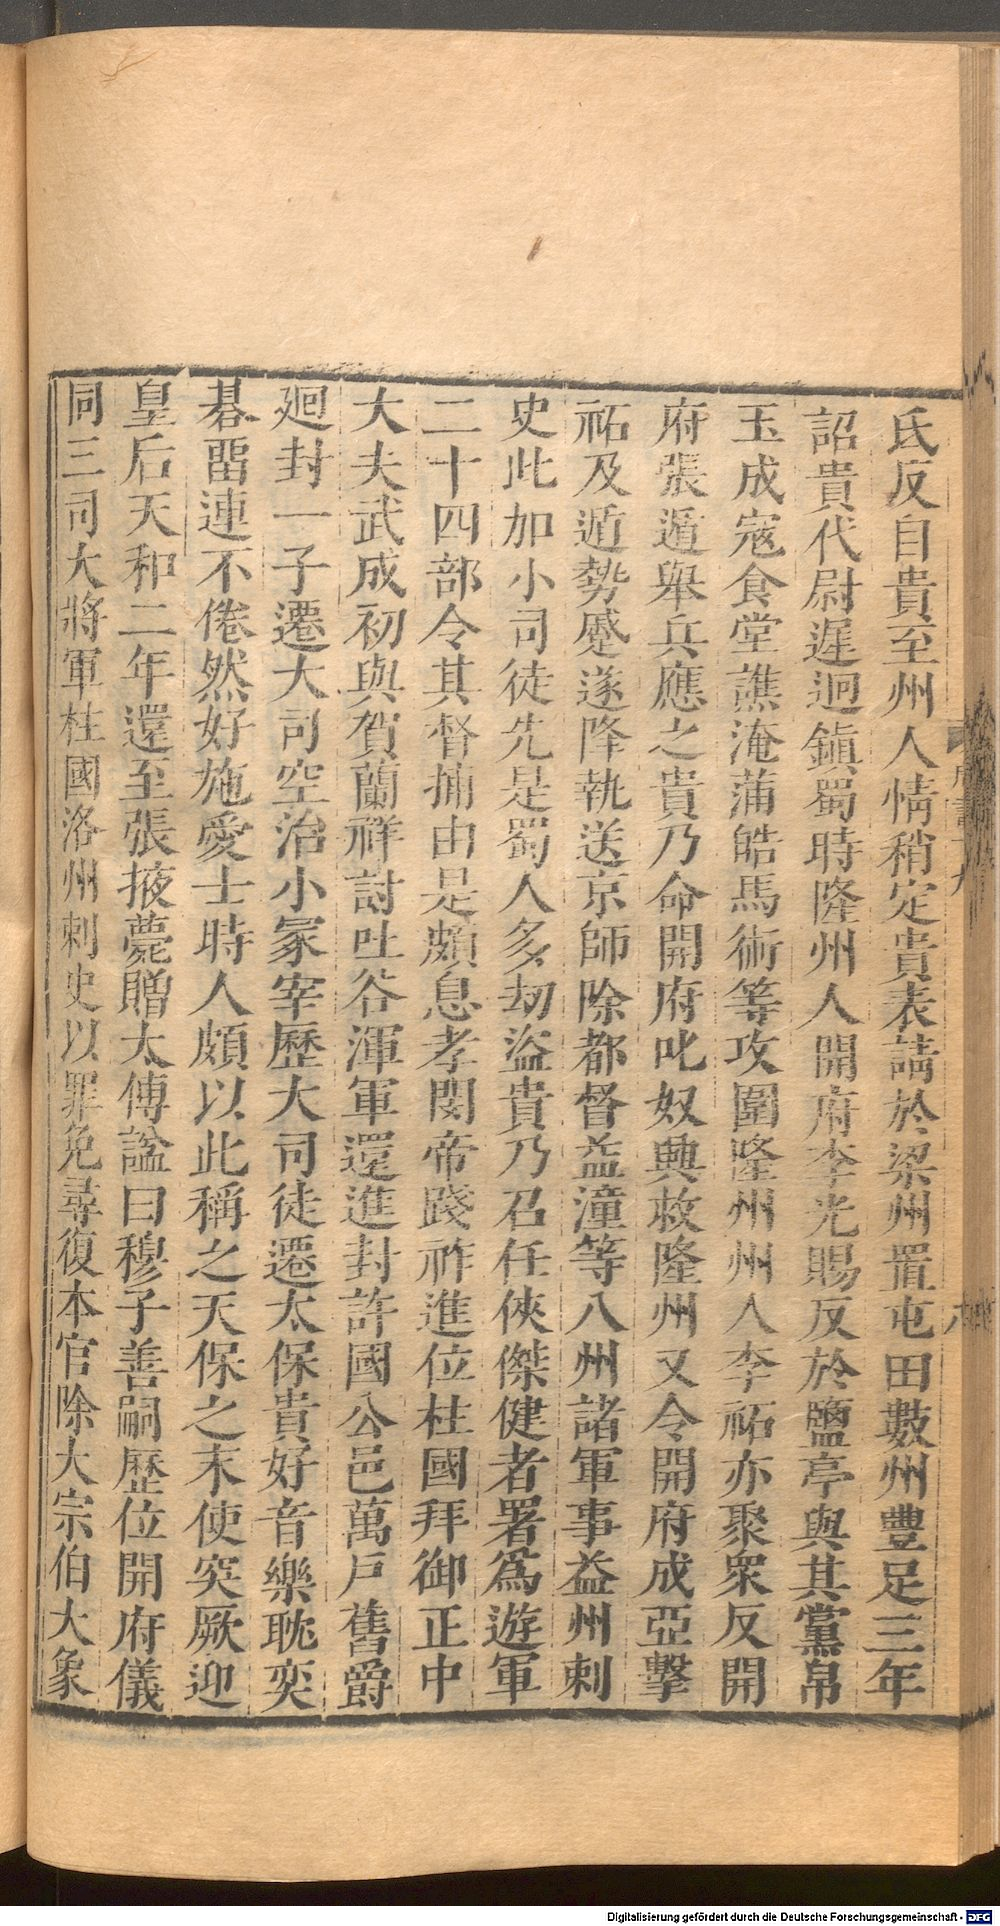 氏反自貴至州人情稍定貴表請於梁州置屯田數州豐足三年
詔貴代尉遲迥鎮蜀時隆州人開府李光賜反於鹽亭與其黨帛
玉成寇食堂譙淹蒲皓馬術等攻圍隆州州人李祏亦聚衆反開
府張遁舉兵應之貴乃命開府叱奴興救隆州又令開府成亞擊
祏及遁勢蹙遂降執送京師除都督益潼等八州諸軍事益州刺
史此加小司徒先是蜀人多刼盜貴乃召任俠傑健者署爲遊軍
二十四部令其督捕由是頗息孝閔帝踐祚進位柱國拜御正中
大夫武成初與賀蘭祥討吐谷渾軍還進封許國公邑萬戸舊爵
廻封一子遷大司空治小冢宰歷大司徒遷太保貴好音樂耽奕
碁畱連不倦然好施愛士時人頗以此稱之天保之末使突厥迎
皇后天和二年還至張掖薨贈太傅諡曰穆子善嗣歴位開府儀
同三司大將軍柱國洛州刺史以罪免尋復本官除大宗伯大象
Digitalisierung gefördert durch die Deutsche Forschungsgemeinschaft - DFG